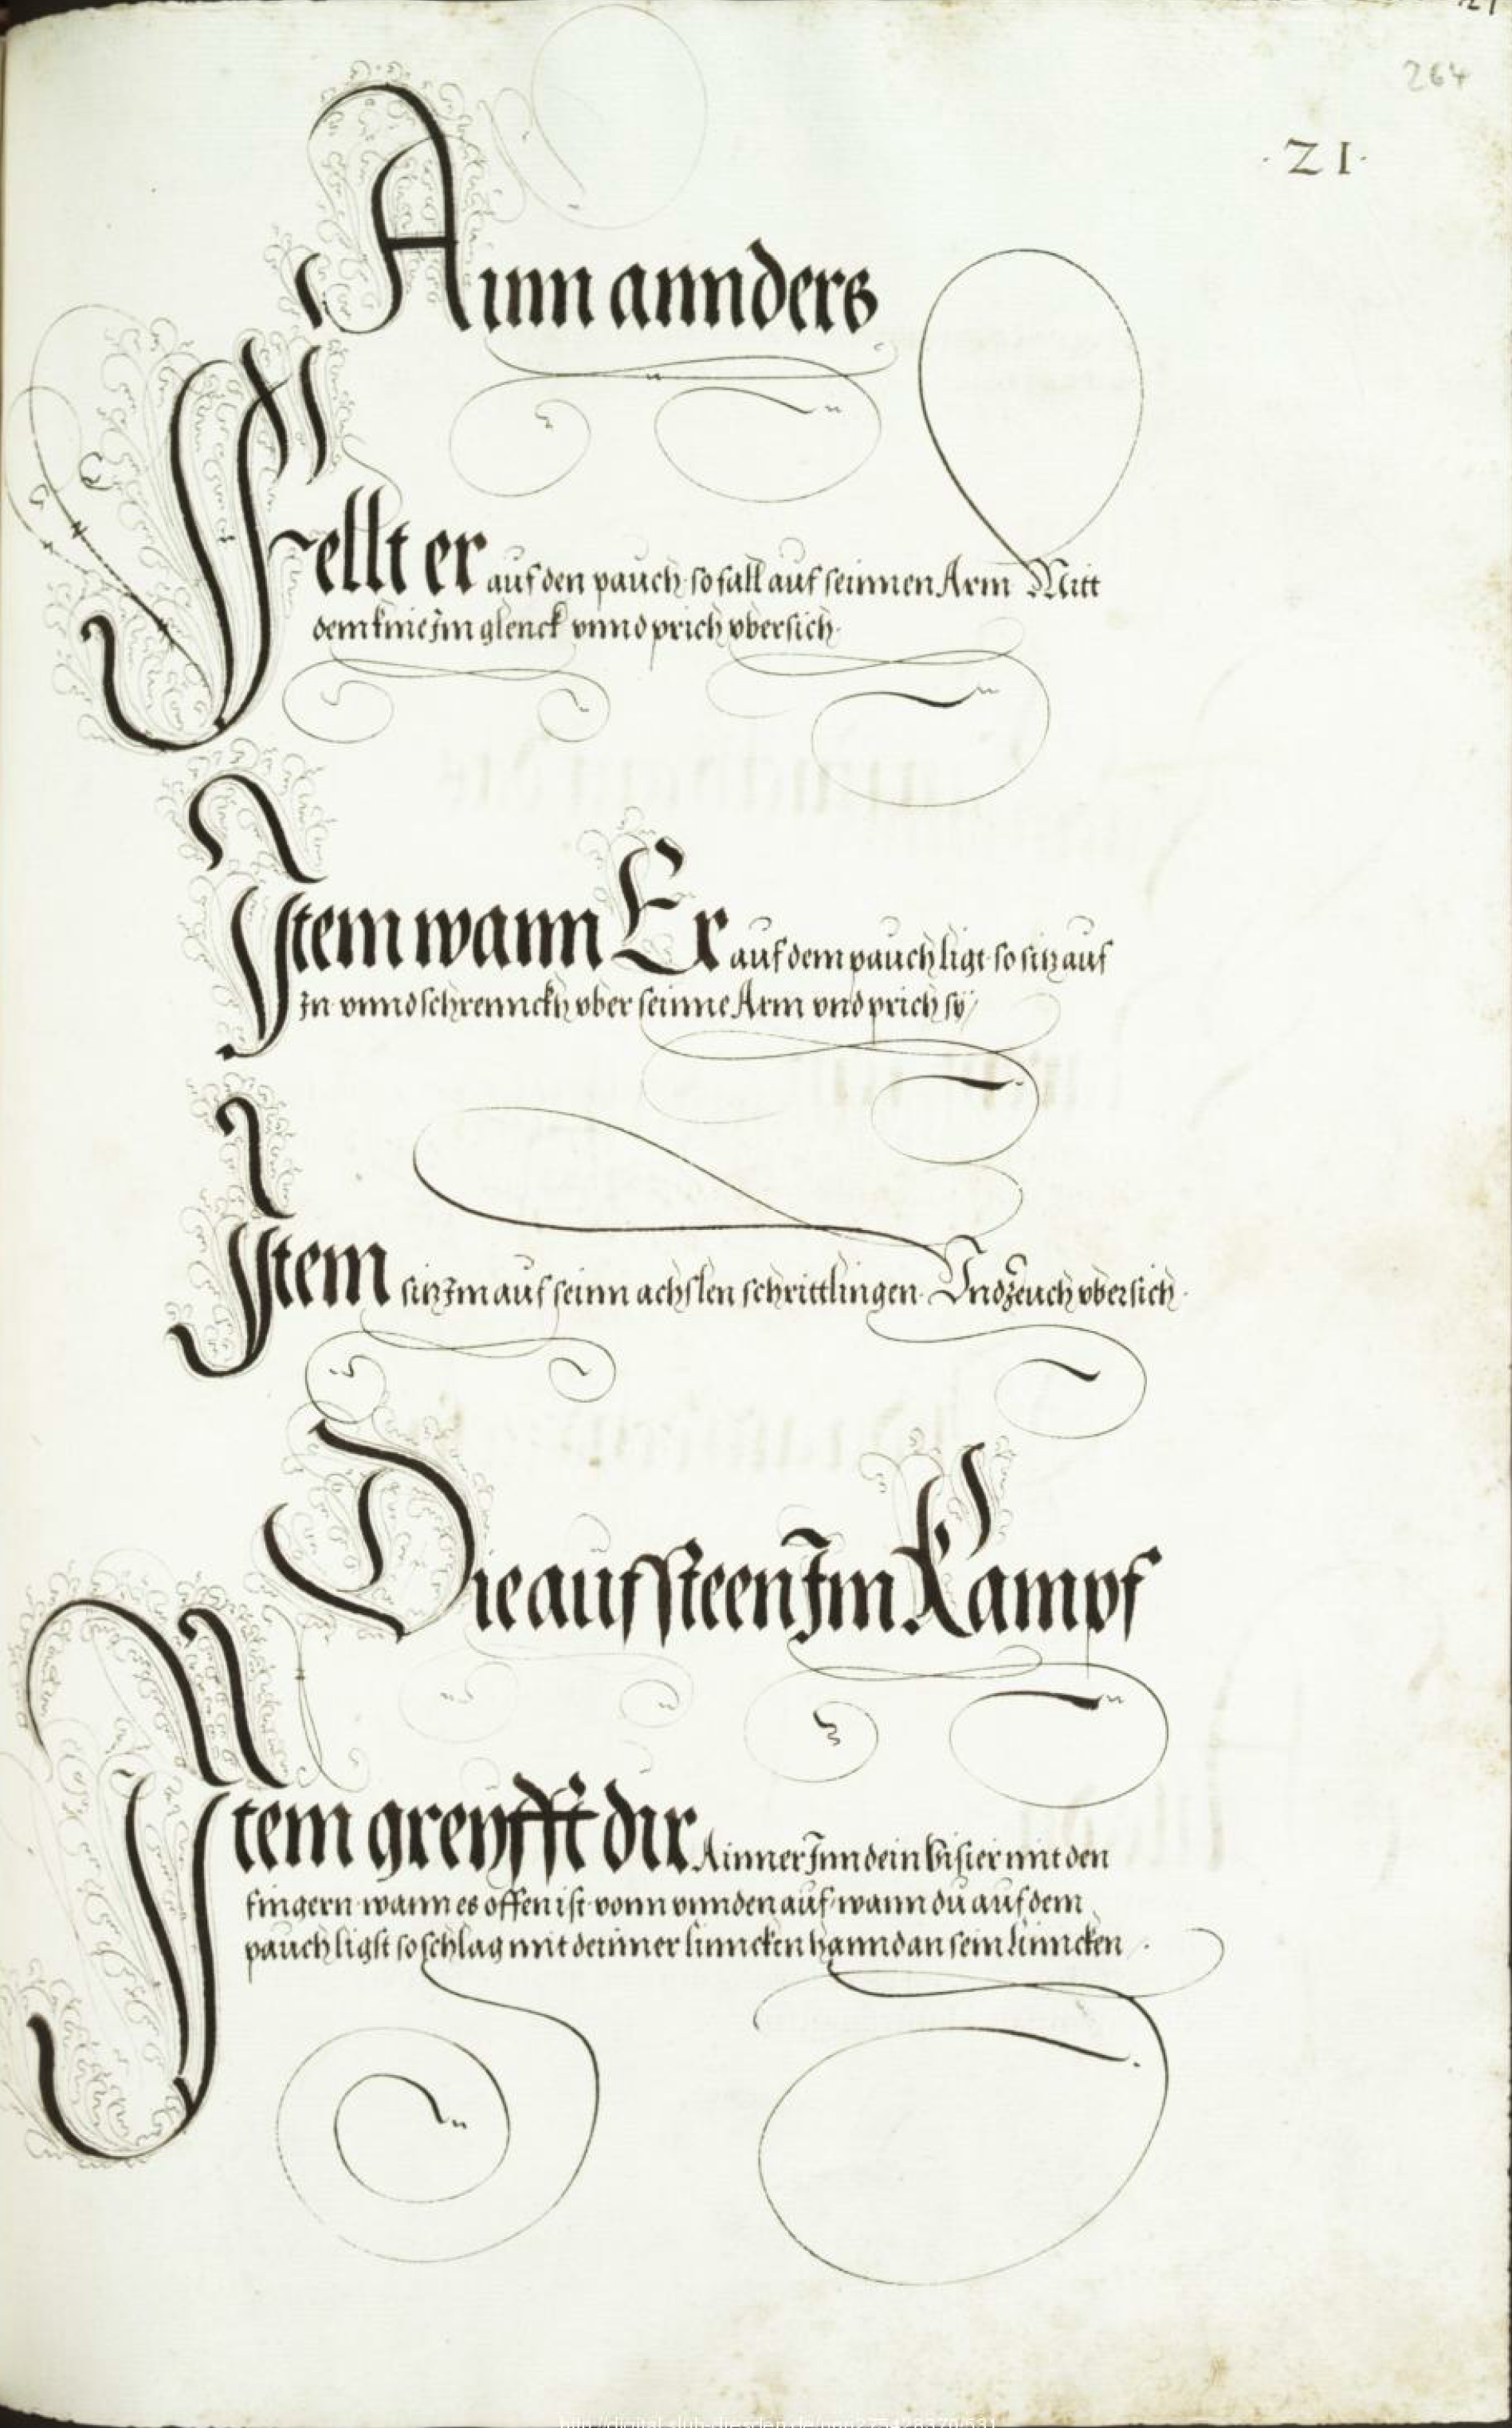 264
·21·
Ainn annders
Fellt er auf den pauch so fall auf seinnen Arm Mitt
dem knie Jm glenck vnnd prich vbersich
Jtem wann Er auf dem pauch ligt so sitz auf
Jn vnnd schrennckh vber seinne Arm vnd prich sÿ
Jtem sitz Jm auf seinn achslen schrittlingen Vnd zeuch vbersich
Die auf steen Jm Kampf
Jtem greyfft dir Ainner Jnn dein visier mit den
fingern wann es offen ist vonn vnnden auf wann du auf dem
pauch ligst so schlag mit deinner linncken hannd an sein linncken